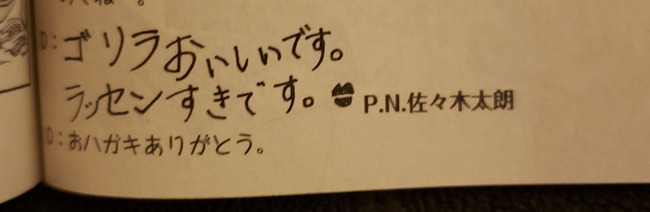 D:ゴリラおいしいです。
ラッセンすきです。 P.N.佐々木太朗
O:おハガキありがとう。